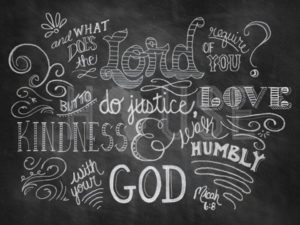 and WHAT DOES the Lord require of YOU?
BUT TO do justice, LOVE
KINDNESS & walk HUMBLY
with your GOD
Micah 6:8